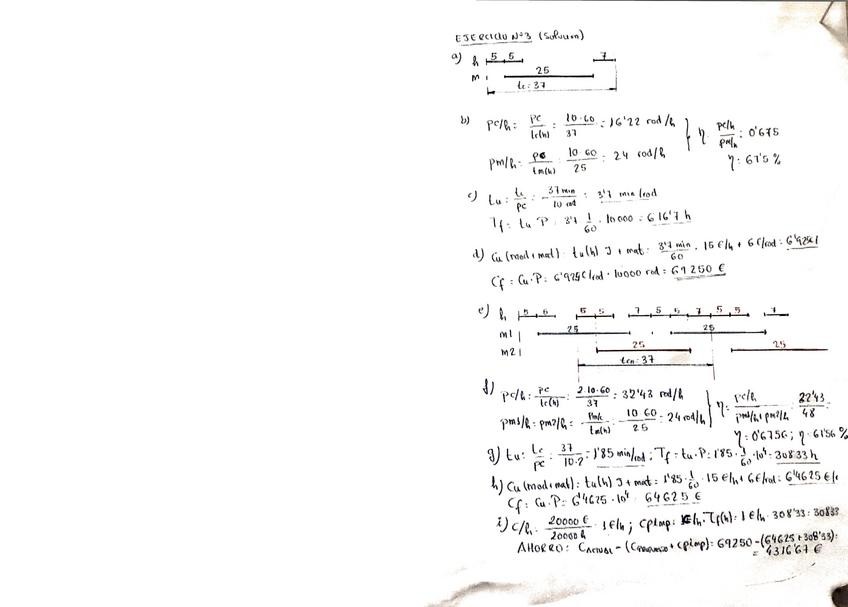 EJERCICIO Nº3 (Solución)
a) h 5 5 7
m 25
tc: 37
b) pc/h = pc / tc(h) = 10·60 / 37 = 16'22 rod/h
η = pc/h / pm/h = 0'675
pm/h = pc / tm(h) = 10·60 / 25 = 24 rod/h
η = 67'5 %
c) tu = tc / pc = 37 min / 10 rod = 3'7 min/rod
Tf = tu·P = 3'7 · 1/60 · 10000 = 616'7 h
d) Cu (mod+mat) = tu(h) J + mat = 3'7 min / 60 · 15 €/h + 6 €/rod = 6'925 €/
Cf = Cu·P = 6'925 €/rod · 10000 rod = 69250 €
e) h 5 5 5 5 7 5 5 7 5 5 7
m1 25 25
m2 25 25
tcn = 37
f) pc/h = pc / tc(h) = 2·10·60 / 37 = 32'43 rod/h
η = pc/h / pm1/h + pm2/h = 32'43 / 48 =
pm1/h = pm2/h = pm/c / tm(h) = 10·60 / 25 = 24 rod/h
η = 0'6756 ; η = 67'56 %
g) tu = tc / pc = 37 / 10·2 = 1'85 min/rod ; Tf = tu·P = 1'85 · 1/60 · 10⁴ = 308'33 h
h) Cu (mod+mat) = tu(h) J + mat = 1'85 · 1/60 · 15 €/h + 6 €/rod = 6'4625 €/r
Cf = Cu·P = 6'4625 · 10⁴ = 64625 €
i) C/h = 20000 € / 20000 h = 1 €/h ; Cpimp = 1 €/h · Tf(h) = 1 €/h · 308'33 = 308'33
AHORRO = Cactual - (Cnuevo + Cpimp) = 69250 - (64625 + 308'33) =
= 4316'67 €